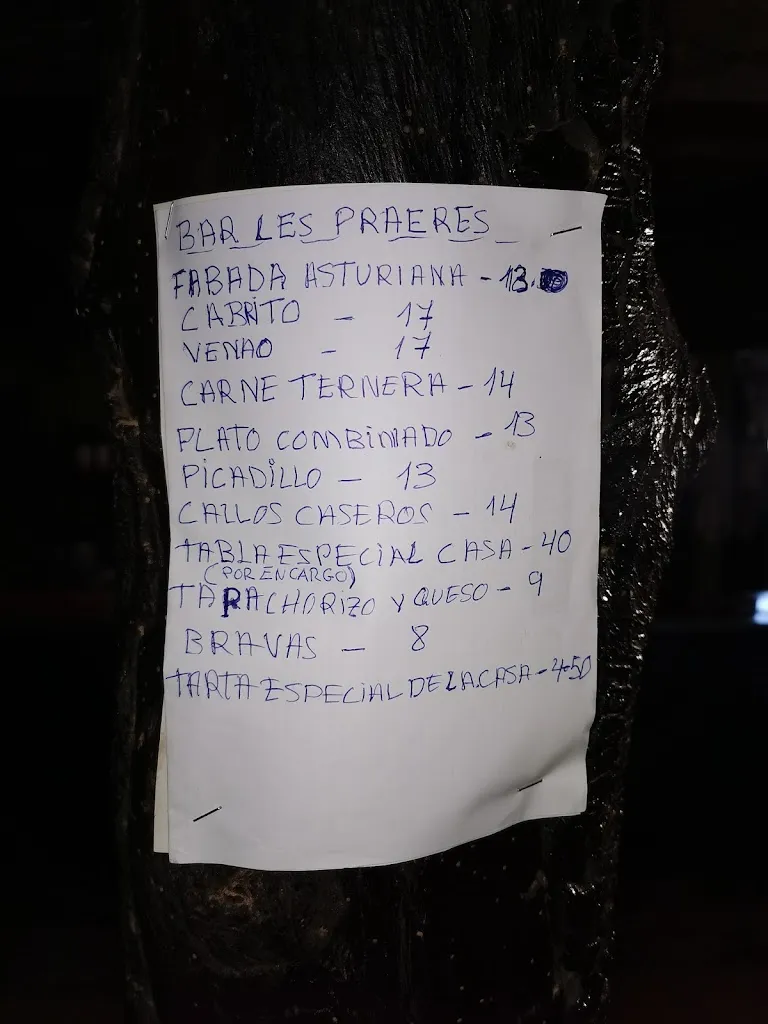 BAR LES PRAERES
FABADA ASTURIANA - 13.
CABRITO - 17
VENAO - 17
CARNE TERNERA - 14
PLATO COMBINADO - 13
PICADILLO - 13
CALLOS CASEROS - 14
TABLA ESPECIAL CASA - 40
(POR ENCARGO)
TAPA CHORIZO Y QUESO - 9
BRAVAS - 8
TARTA ESPECIAL DE LA CASA - 4.50